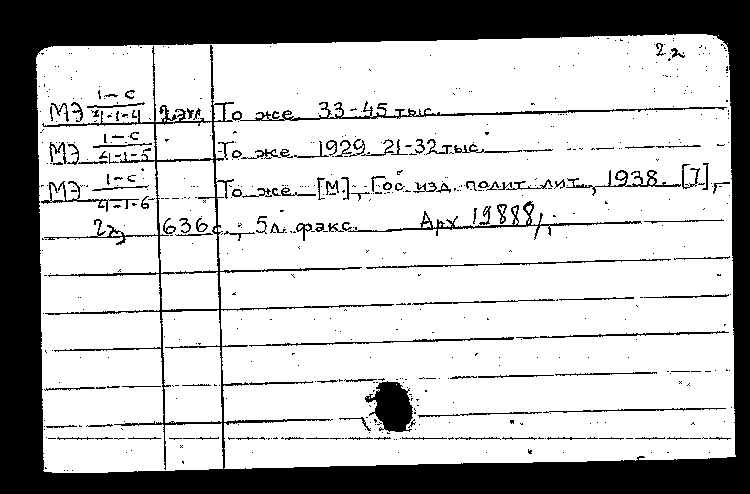 2.2
МЭ 1-с/4-1-4 2 экз. То же. 33-45 тыс.
МЭ 1-с/4-1-5 То же. 1929. 21-32 тыс.
МЭ 1-с/4-1-6 То же. [М.], Гос. изд. полит. лит., 1938. [7],
2э 636 с., 5 л. факс. Арх 19888/;